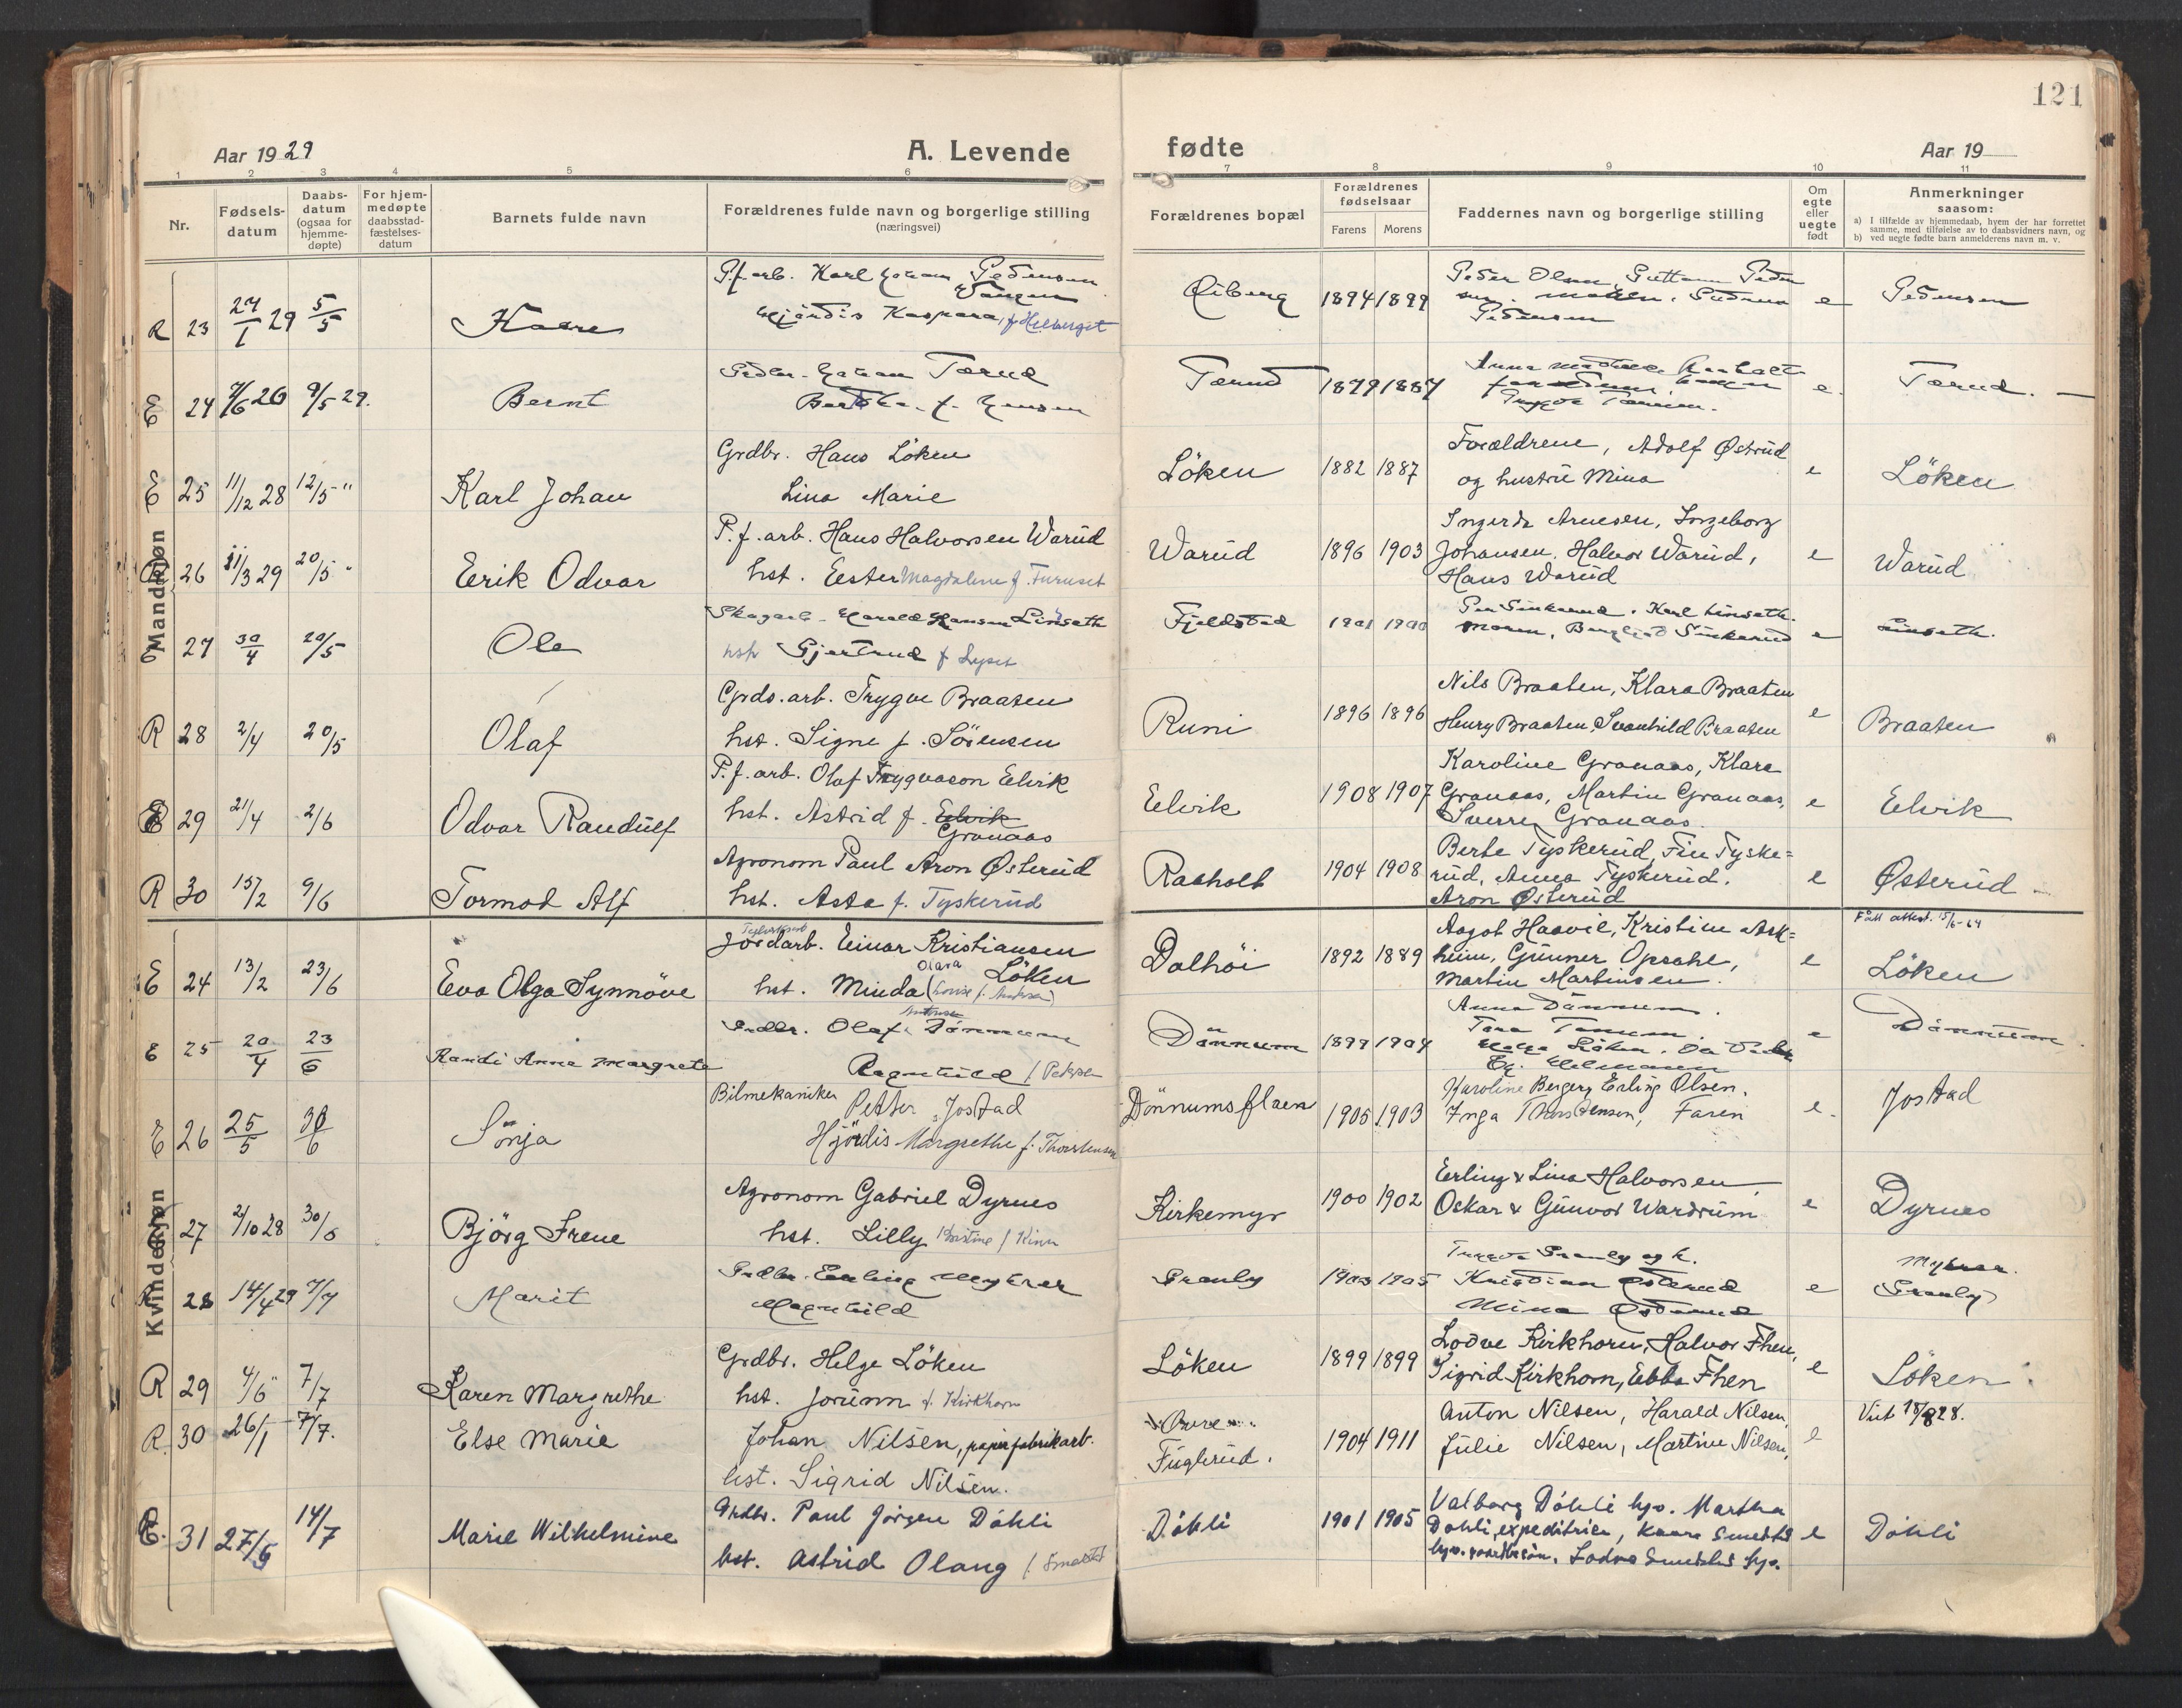 121
Aar 1929
A. Levende
fødte
Aar 19
1 2 3 4 5 6 7 8 9 10 11
Nr.
Fødsels-
datum
Daabs-
datum
(ogsaa for
hjemme-
døpte)
For hjem-
medøpte
daabsstad-
fæstelses-
datum
Barnets fulde navn
Forældrenes fulde navn og borgerlige stilling
(næringsvei)
Forældrenes bopæl
Forældrenes
fødselsaar
Farens Morens
Faddernes navn og borgerlige stilling
Om
egte
eller
uegte
født
Anmerkninger
saasom:
a) I tilfælde av hjemmedaab, hvem der har forrettet
samme, med tilføielse av to daabsvidners navn, og
b) ved uegte fødte barn anmelderens navn m. v.
Mandkjøn
R 23 24/1 29 5/5
Kaare
P.f.arb. Karl Johan Pedersen
Hjørdis Kaspara, f. Helberget
1894 1899
Peder Olsen
Pedersen
e
Pedersen
E 24 4/6 26 9/5 29.
Bernt
Johan Tærud
Bertha f. Jensen
Tærud
1879 1887
e.
Tærud.
E 25 11/12 28 12/5 "
Karl Johan
Grdbr. Hans Löken
Lina Marie
Löken
1882 1887
Forældrene, Adolf Østrud
og hustru Mina
e
Löken
R 26 11/3 29 20/5 "
Erik Odvar
P.f.arb. Hans Halvorsen Warud
hst. Ester Magdalene f. Furuset
Warud
1896 1903
Ingerda Arnesen, Ingeborg
Johansen, Halvor Warud,
Hans Warud
e
Warud
E 27 30/4 20/5
Ole
Skogarb. Harald Hansen Linseth
hst. Gjertrud f. Lyset
Fjeldstad
1901 1900
Per Sinkerud. Karl Linseth.
Moren, Bergljot Sinkerud
e
Linseth.
R 28 2/4 20/5
Olaf
Grds.arb. Trygve Braaten
hst. Signe f. Sörensen
Runi
1896 1896
Nils Braaten, Klara Braaten
Henry Braaten, Svanhild Braaten
e
Braaten
29 21/4 2/6
Odvar Randulf
P.f.arb. Olaf Trygvason Eelvik
hst. Astrid f. Eelvik
Granaas
Eelvik
1908 1907
Karoline Granaas, Klara
Granaas, Martin Granaas,
Sverre Granaas.
e
Eelvik
R 30 15/2 9/6
Tormod Alf
Agronom Paul Aron Østerud
hst. Asta f. Tyskerud
Raaholt
1904 1908
Berte Tyskerud, Fin Tyske=
rud, Anna Tyskerud.
Aron Østerud
e
Østerud
Kvindekjøn
E 24 13/2 23/6
Eva Olga Synnöve
Jordarb. Einar Kristiansen
Löken
hst. Minda Olava (Lovise f. Andersen)
Dalhöi
1892 1889
Aagot Haavie, Kristine Ask=
heim, Gunner Opsahl,
Martin Martinsen.
e
Fått attest. 15/6-64
Löken
E 25 20/4 23/6
Randi Anna Margrete
Grdbr. Olaf Antonsen Dönnum
Ragnhild f. Pettersen
Dönnum
1899 1904
Anna Dönnum.
e
Dönnum.
E 26 25/5 30/6
Sonja
Bilmekaniker Petter Jostad
Hjördis Margrethe f. Thorstensen
Dönnumsflaen
1905 1903
Karoline Berger, Erling Olsen.
Inga Thorstensen, Faren
e.
Jostad
27 2/10 28 30/6
Björg Irene
Agronom Gabriel Dyrnes
hst. Lilly Kristine f. Kinn
Kirkemyr
1900 1902
Erling & Lina Halvorsen,
Oskar & Gunvor Wardrum
e
Dyrnes
R 28 14/4 29 7/7
Marit
Grdbr. Erling Myhrer
Magnhild
Granly
1903 1905
Trygve Granly og h.
Kristian Østerud
Mina Østerud
e
Myhrer.
Granly
R 29 4/6 " 7/7
Karen Margrethe
Grdbr. Helge Löken
hst. Jorunn f. Kirkhorn
Löken
1899 1899
Lodve Kirkhorn, Halvor Fhen,
Sigrid Kirkhorn, Ebba Fhen
e
Löken
R. 30 26/1 7/7.
Else Marie
Johan Nilsen, papirfabrikarb.
hst. Sigrid Nilsen.
Fuglerud.
1904 1911
Anton Nilsen, Harald Nilsen,
Julie Nilsen, Martine Nilsen,
e
Viet 18/8 28.
E. 31 27/5 14/7
Marie Wilhelmine
Grdbr. Paul Jörgen Döhli
hst. Astrid Olaug f. Smestad
Döhli
1901 1905
Valborg Döhli hjv. Martha
Döhli, expeditrise, Kaare Smestad
e
Döhli